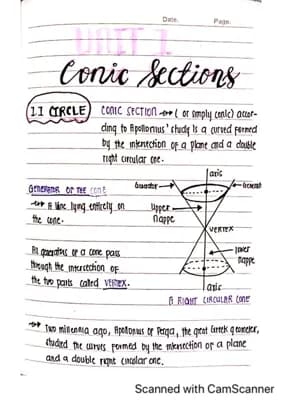 Date.
Page.
UNIT 1
Conic Sections
1.1 CIRCLE
CONIC SECTION ( or simply conic) accor-
ding to Apollonius' study is a curved formed
by the intersection of a plane and a double
right circular cone.
GENERATOR OF THE CONE
A line lying entirely on
the cone.
All generators of a cone pass
through the intersection of
the two parts called VERTEX.
axis
Generator
Generat
upper
nappe
VERTEX
lower
nappe
axis
A RIGHT CIRCULAR CONE
Two millennia ago, Apollonius of Perga, the great Greek geometer,
studied the curves formed by the intersection of a plane
and a double right circular cone.
Scanned with CamScanner